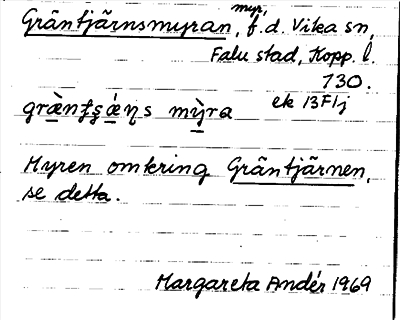 Gräntjärnsmyran, myr, f.d. Vika sn,
Falu stad, Kopp. l.
730.
ek 13F1j
grä̀nʈʂǽɳs mỳra
Myren omkring Gräntjärnen,
se detta.
Margareta Andér 1969